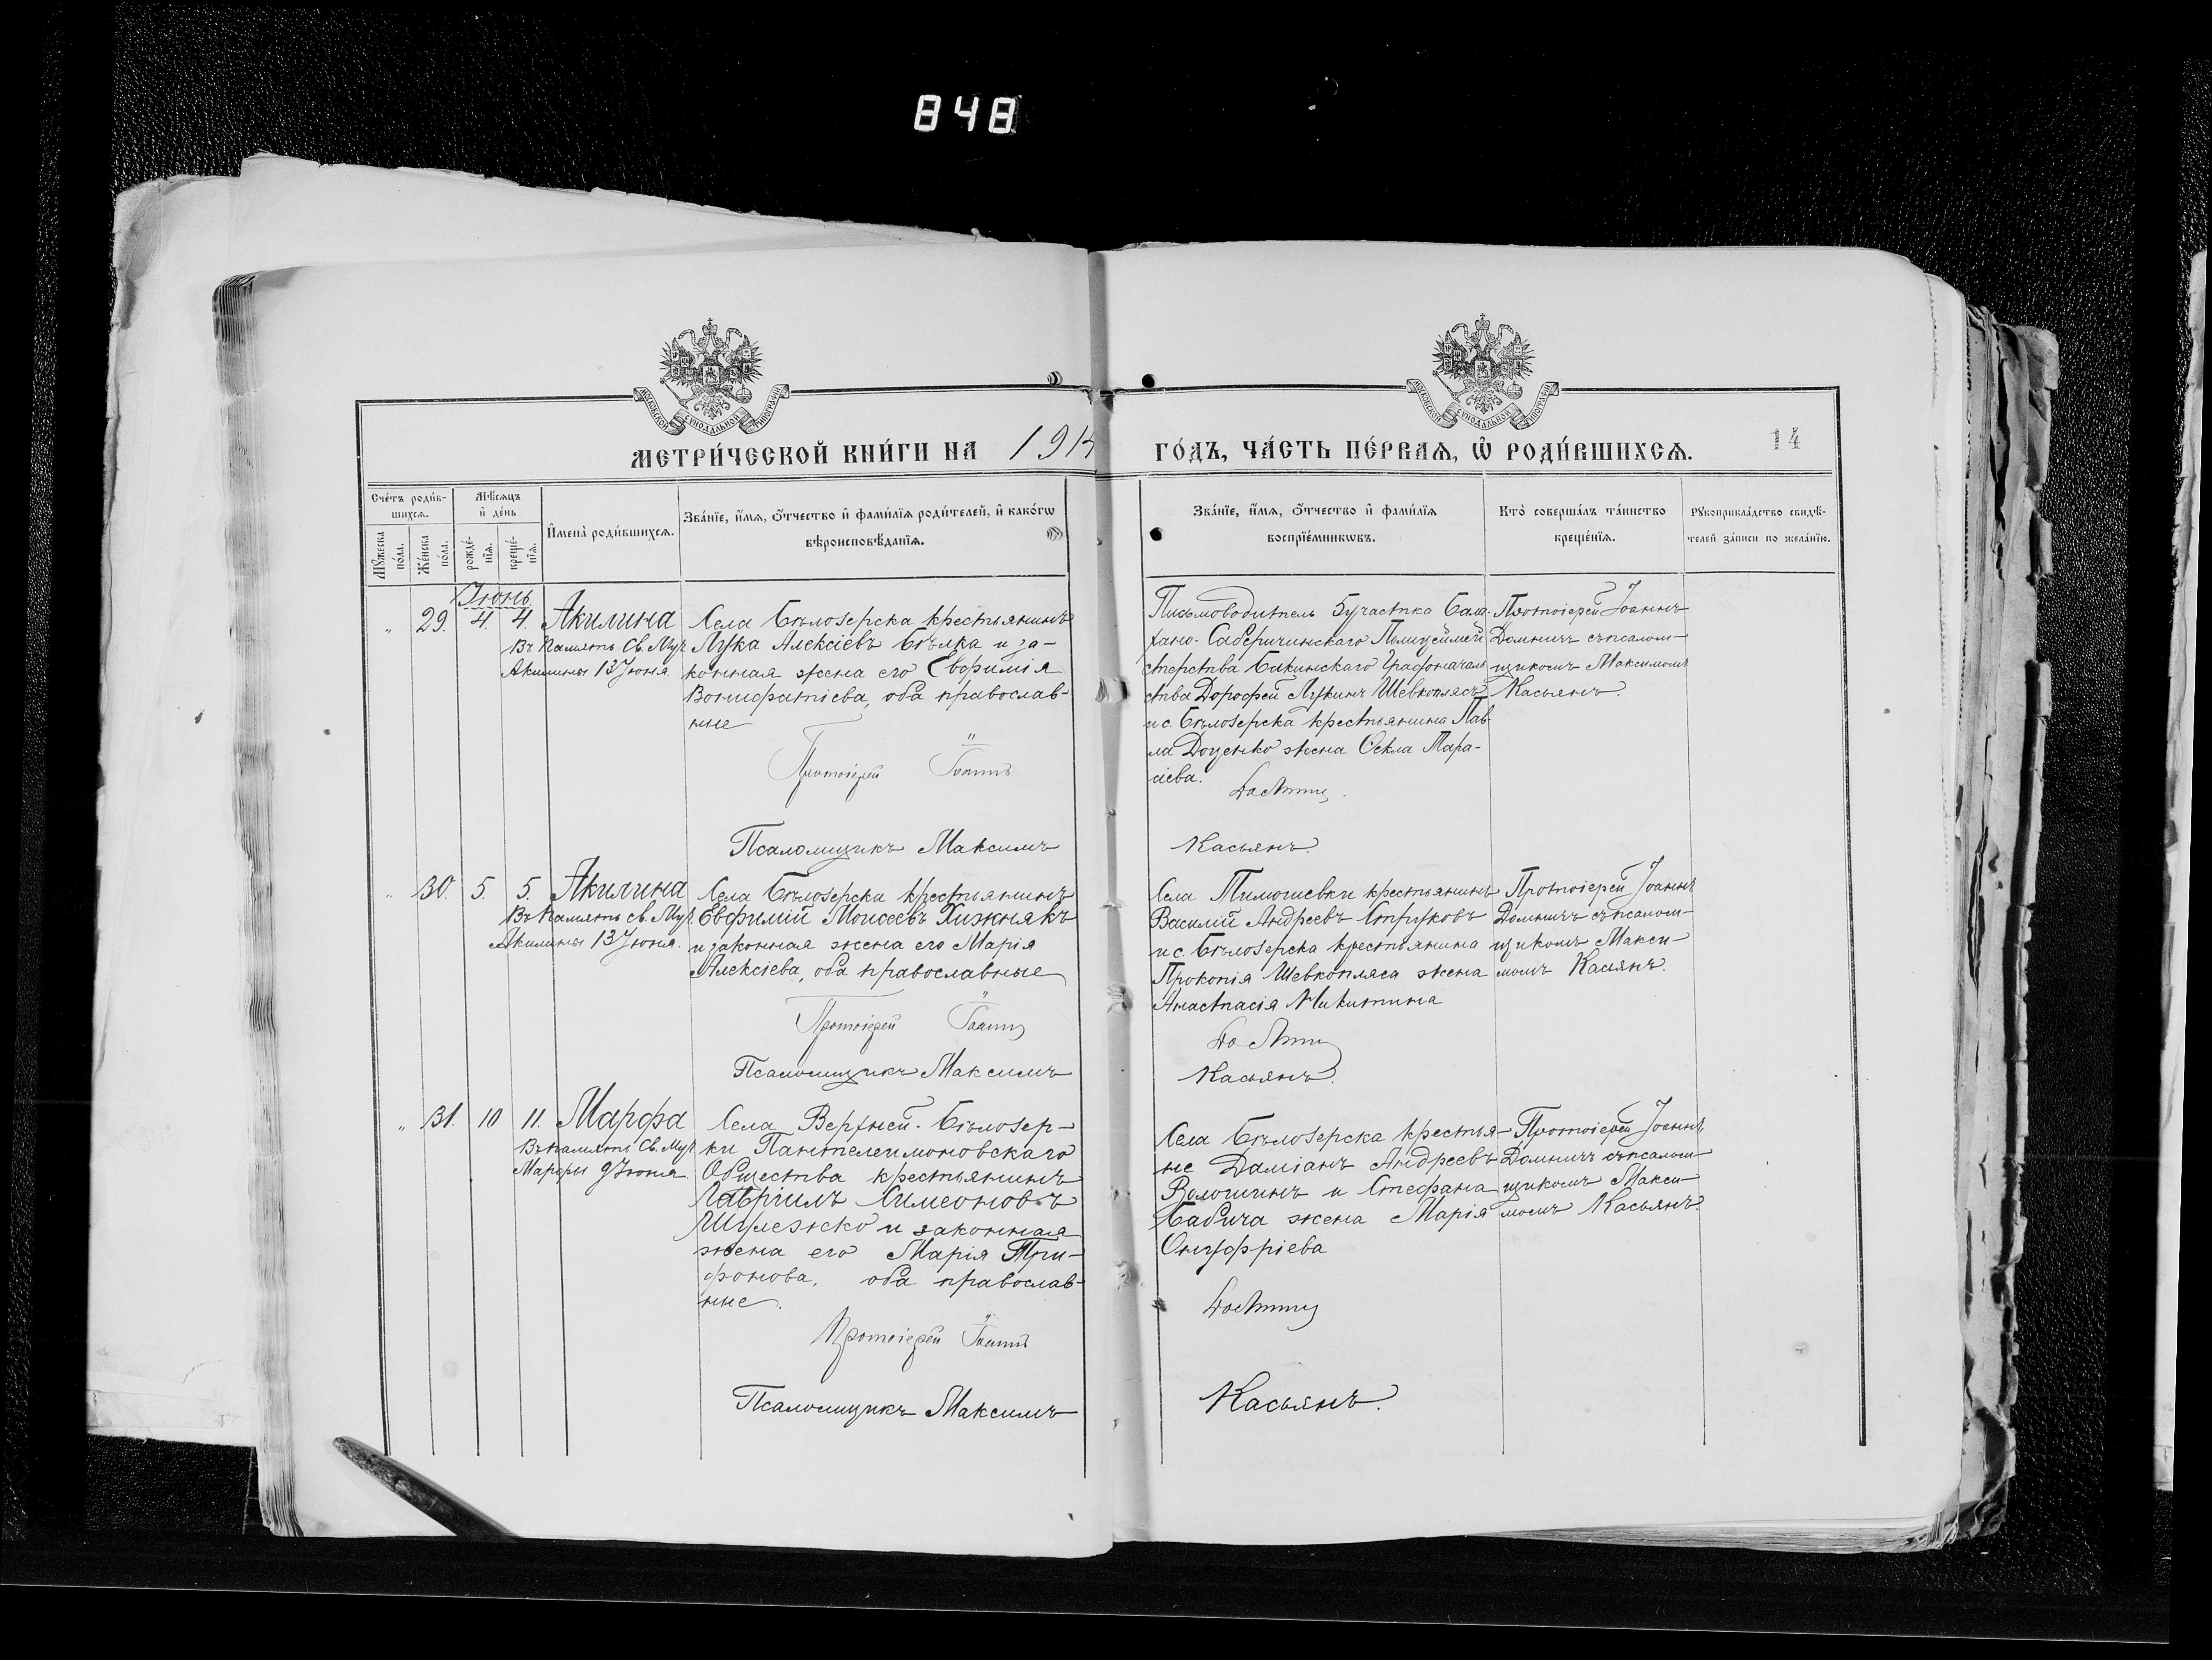 848
МОСКОВСКОЙ СѴНОДАЛЬНОЙ ТИПОГРАФІИ
МОСКОВСКОЙ СѴНОДАЛЬНОЙ ТИПОГРАФІИ
МЕТРИ́ЧЕСКОЙ КНИ́ГИ НА 191
ГО́ДЪ, ЧА́СТЬ ПЕ́РВАѦ, Ѡ҆ РОДИ́ВШИХСѦ.
14
Сче́тъ роди́в-
шихсѧ.
Мѣ́сѧцъ
и҆ де́нь
Мꙋ́жеска
по́ла.
Же́нска
по́ла.
рожде́-
нїѧ.
креще́-
нїѧ.
И҆мена̀ роди́вшихсѧ.
Зва́нїе, и҆́мѧ, ѻ҆́тчество и҆ фами́лїѧ роди́телей, и҆ како́гѡ
вѣроисповѣ́данїѧ.
Зва́нїе, и҆́мѧ, ѻ҆́тчество и҆ фами́лїѧ
воспрїе́мникѡвъ.
Кто̀ соверша́лъ та́инство
креще́нїѧ.
Рꙋкоприкла́дство свидѣ́-
телей за́писи по жела́нїю.
Іюнь
29. 4. 4. Акилина
Въ память Св. Муч.
Акилины 13 Іюня
Села Бѣлозерска крестьянинъ
Лука Алексіевъ Бѣлка и за-
конная жена его Евфимія
Вонифатіева, оба православ-
ные
Протоіерей Іоаннъ
Псаломщикъ Максимъ
Письмоводитель 5 участка Бала-
хано-Сабунчинскаго Полицеймей
стерства Бакинскаго Градоначаль
ства Дорофей Лукинъ Шевкоплясъ
и с. Бѣлозерска крестьянина Пав-
ла Доценко жена Ѳекла Тара-
сіева.
Касьянъ.
Протоіерей Іоаннъ
съ псалом-
щикомъ Максимомъ
Касьянъ.
30. 5. 5. Акилина
Въ память Св. Муч.
Акилины 13 Іюня.
Села Бѣлозерска крестьянинъ
Евфимій Моисеевъ Хижнякъ
и законная жена его Марія
Алексіева, оба православные
Протоіерей Іоаннъ
Псаломщикъ Максимъ
Села Тимошевки крестьянинъ
Василій Андреевъ Струковъ
и с. Бѣлозерска крестьянина
Прокопія Шевкопляса жена
Анастасія Никитина
Касьянъ.
Протоіерей Іоаннъ
съ псалом-
щикомъ Макси-
момъ Касьянъ.
31. 10 11. Марфа
Въ память Св. Муч.
Марфы 9 Іюня.
Села Верхней-Бѣлозер-
ки Пантелеимоновскаго
Общества крестьянинъ
Гавріилъ Симеоновъ
Шулежко и законная
жена его Марія Три-
фонова, оба православ-
ные.
Протоіерей Іоаннъ
Псаломщикъ Максимъ
Села Бѣлозерска крестья-
не Даміанъ Андреевъ
Волошинъ и Стефана
Бабича жена Марія
Онуфріева
Касьянъ.
Протоіерей Іоаннъ
съ псалом-
щикомъ Макси-
момъ Касьянъ.